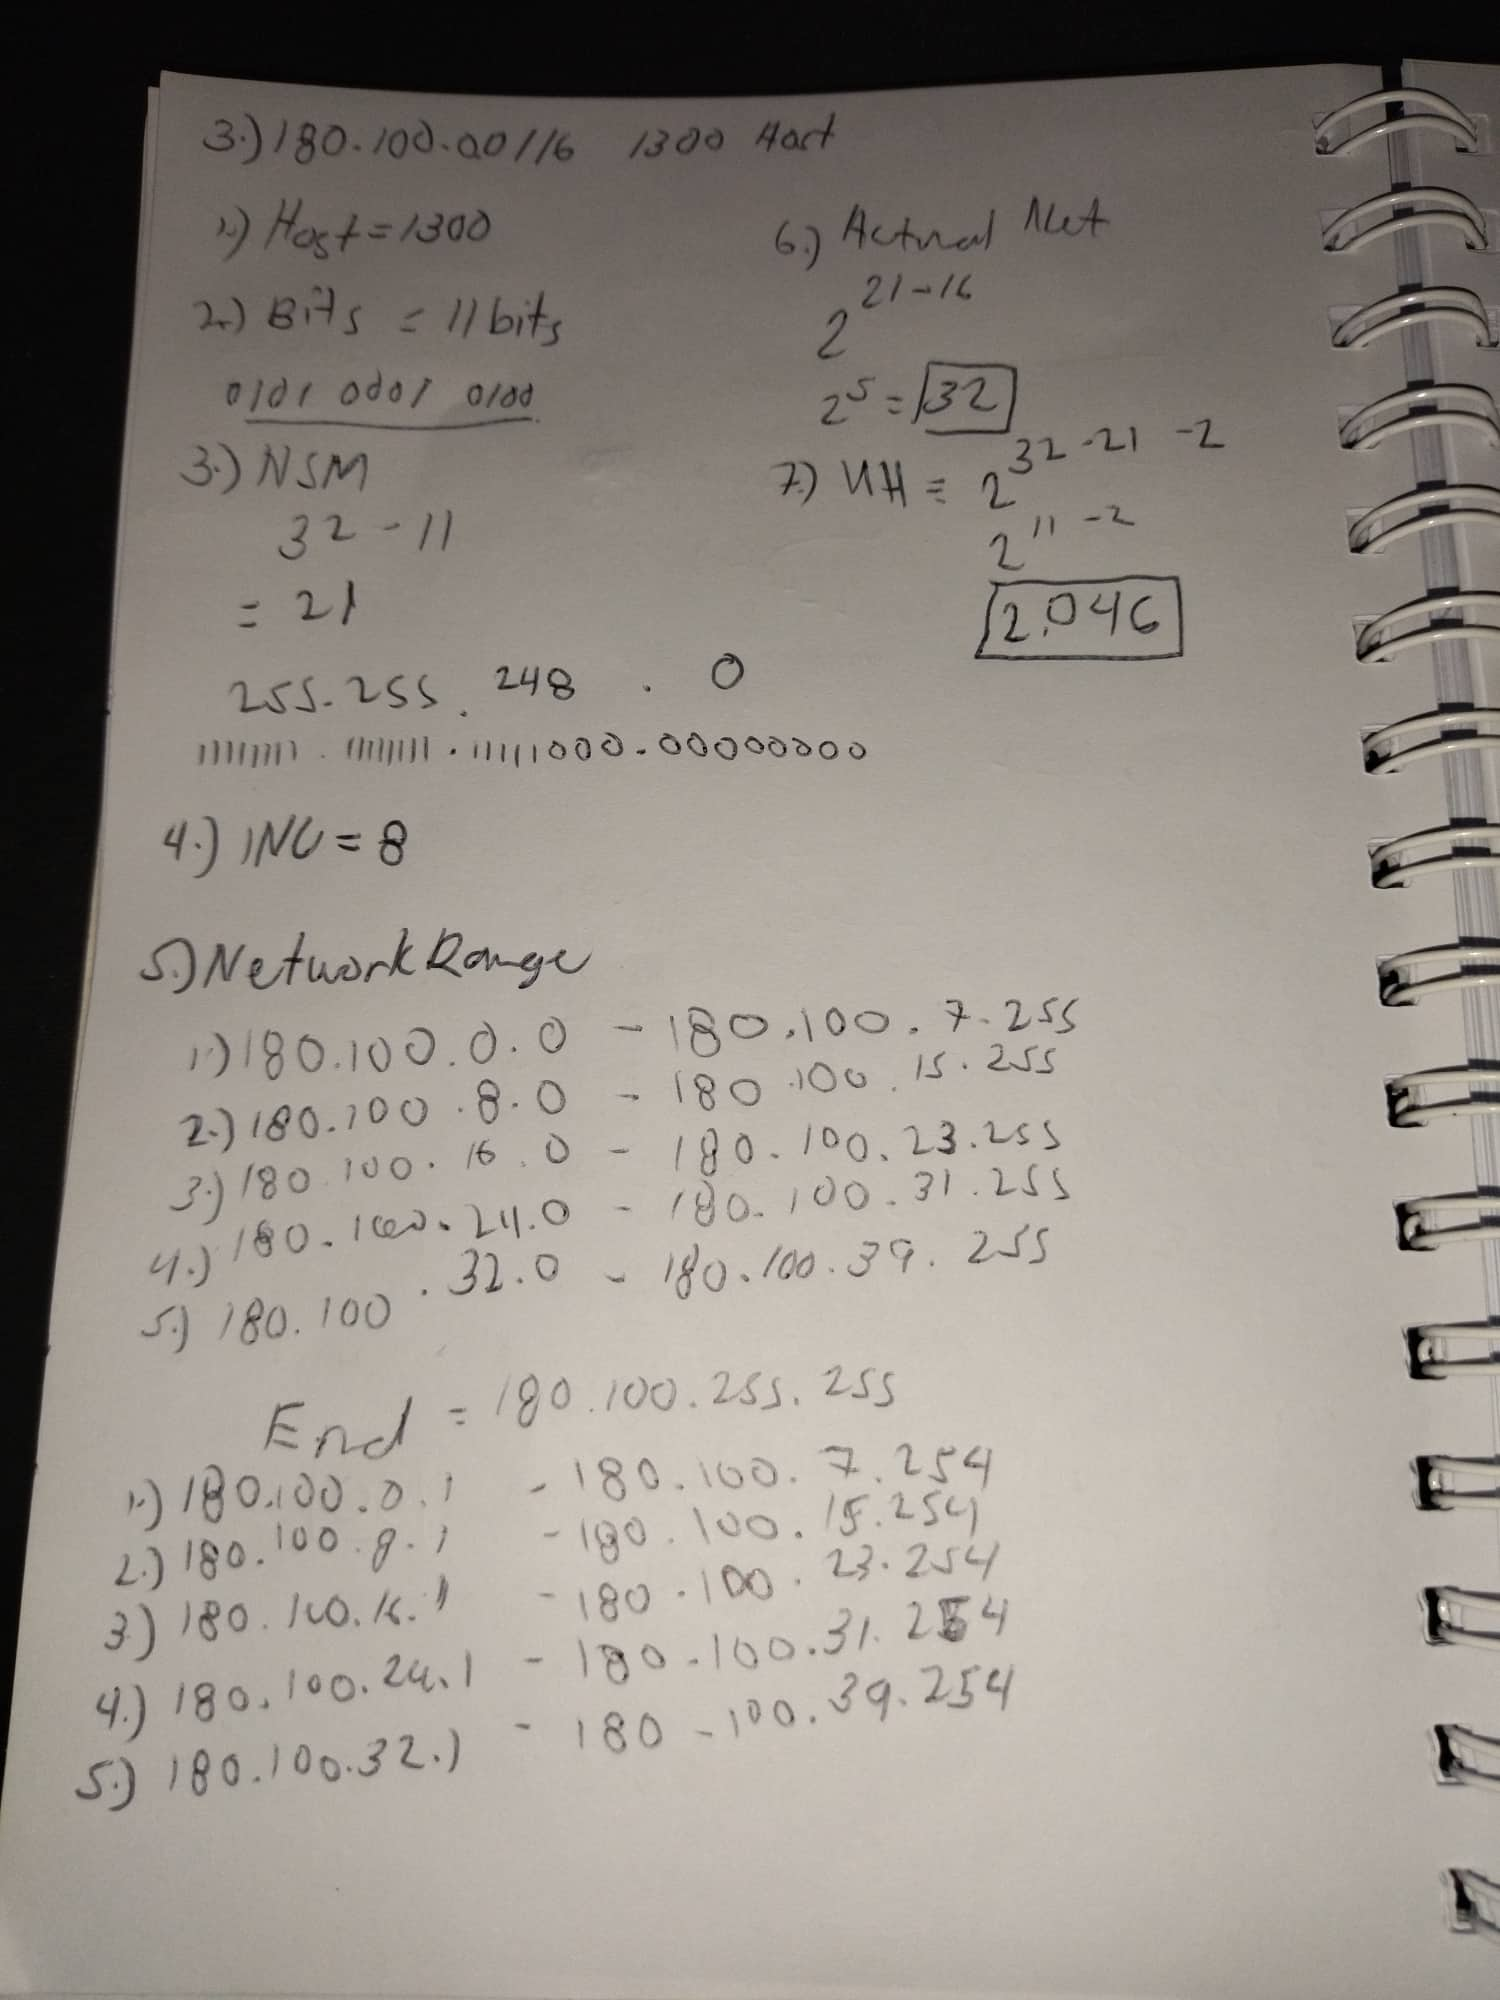 3.) 180.100.00/16 1300 Host
1.) Host = 1300
2.) Bits = 11 bits
0101 0001 0100
3.) NSM
32 - 11
= 21
255.255.248.0
11111111.11111111.11111000.00000000
4.) INC = 8
6.) Actual Net
2^21-16
2^5 = 32
7.) UH = 2^32-21 -2
2^11 -2
2,046
5.) Network Range
1.) 180.100.0.0 - 180.100.7.255
2.) 180.100.8.0 - 180.100.15.255
3.) 180.100.16.0 - 180.100.23.255
4.) 180.100.24.0 - 180.100.31.255
5.) 180.100.32.0 - 180.100.39.255
End = 180.100.255.255
1.) 180.100.0.1 - 180.100.7.254
2.) 180.100.8.1 - 180.100.15.254
3.) 180.100.16.1 - 180.100.23.254
4.) 180.100.24.1 - 180.100.31.254
5.) 180.100.32.1 - 180-100.39.254